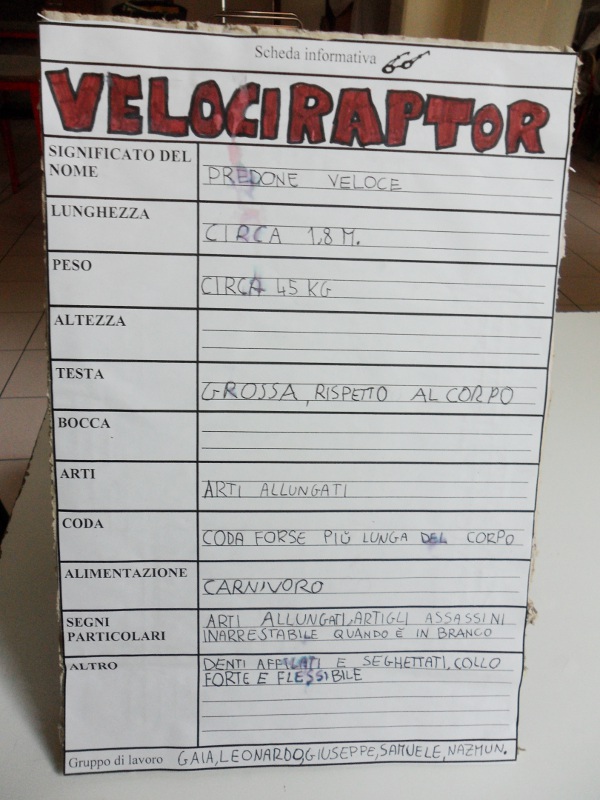 Scheda informativa
VELOCIRAPTOR
SIGNIFICATO DEL
NOME
PREDONE VELOCE
LUNGHEZZA
CIRCA 1,8 M.
PESO
CIRCA 45 KG
ALTEZZA
TESTA
GROSSA, RISPETTO AL CORPO
BOCCA
ARTI
ARTI ALLUNGATI
CODA
CODA FORSE PIÙ LUNGA DEL CORPO
ALIMENTAZIONE
CARNIVORO
SEGNI
PARTICOLARI
ARTI ALLUNGATI, ARTIGLI ASSASSINI
INARRESTABILE QUANDO È IN BRANCO
ALTRO
DENTI AFFILATI E SEGHETTATI, COLLO
FORTE E FLESSIBILE
Gruppo di lavoro GAIA, LEONARDO, GIUSEPPE, SAMUELE, NAZMUN.